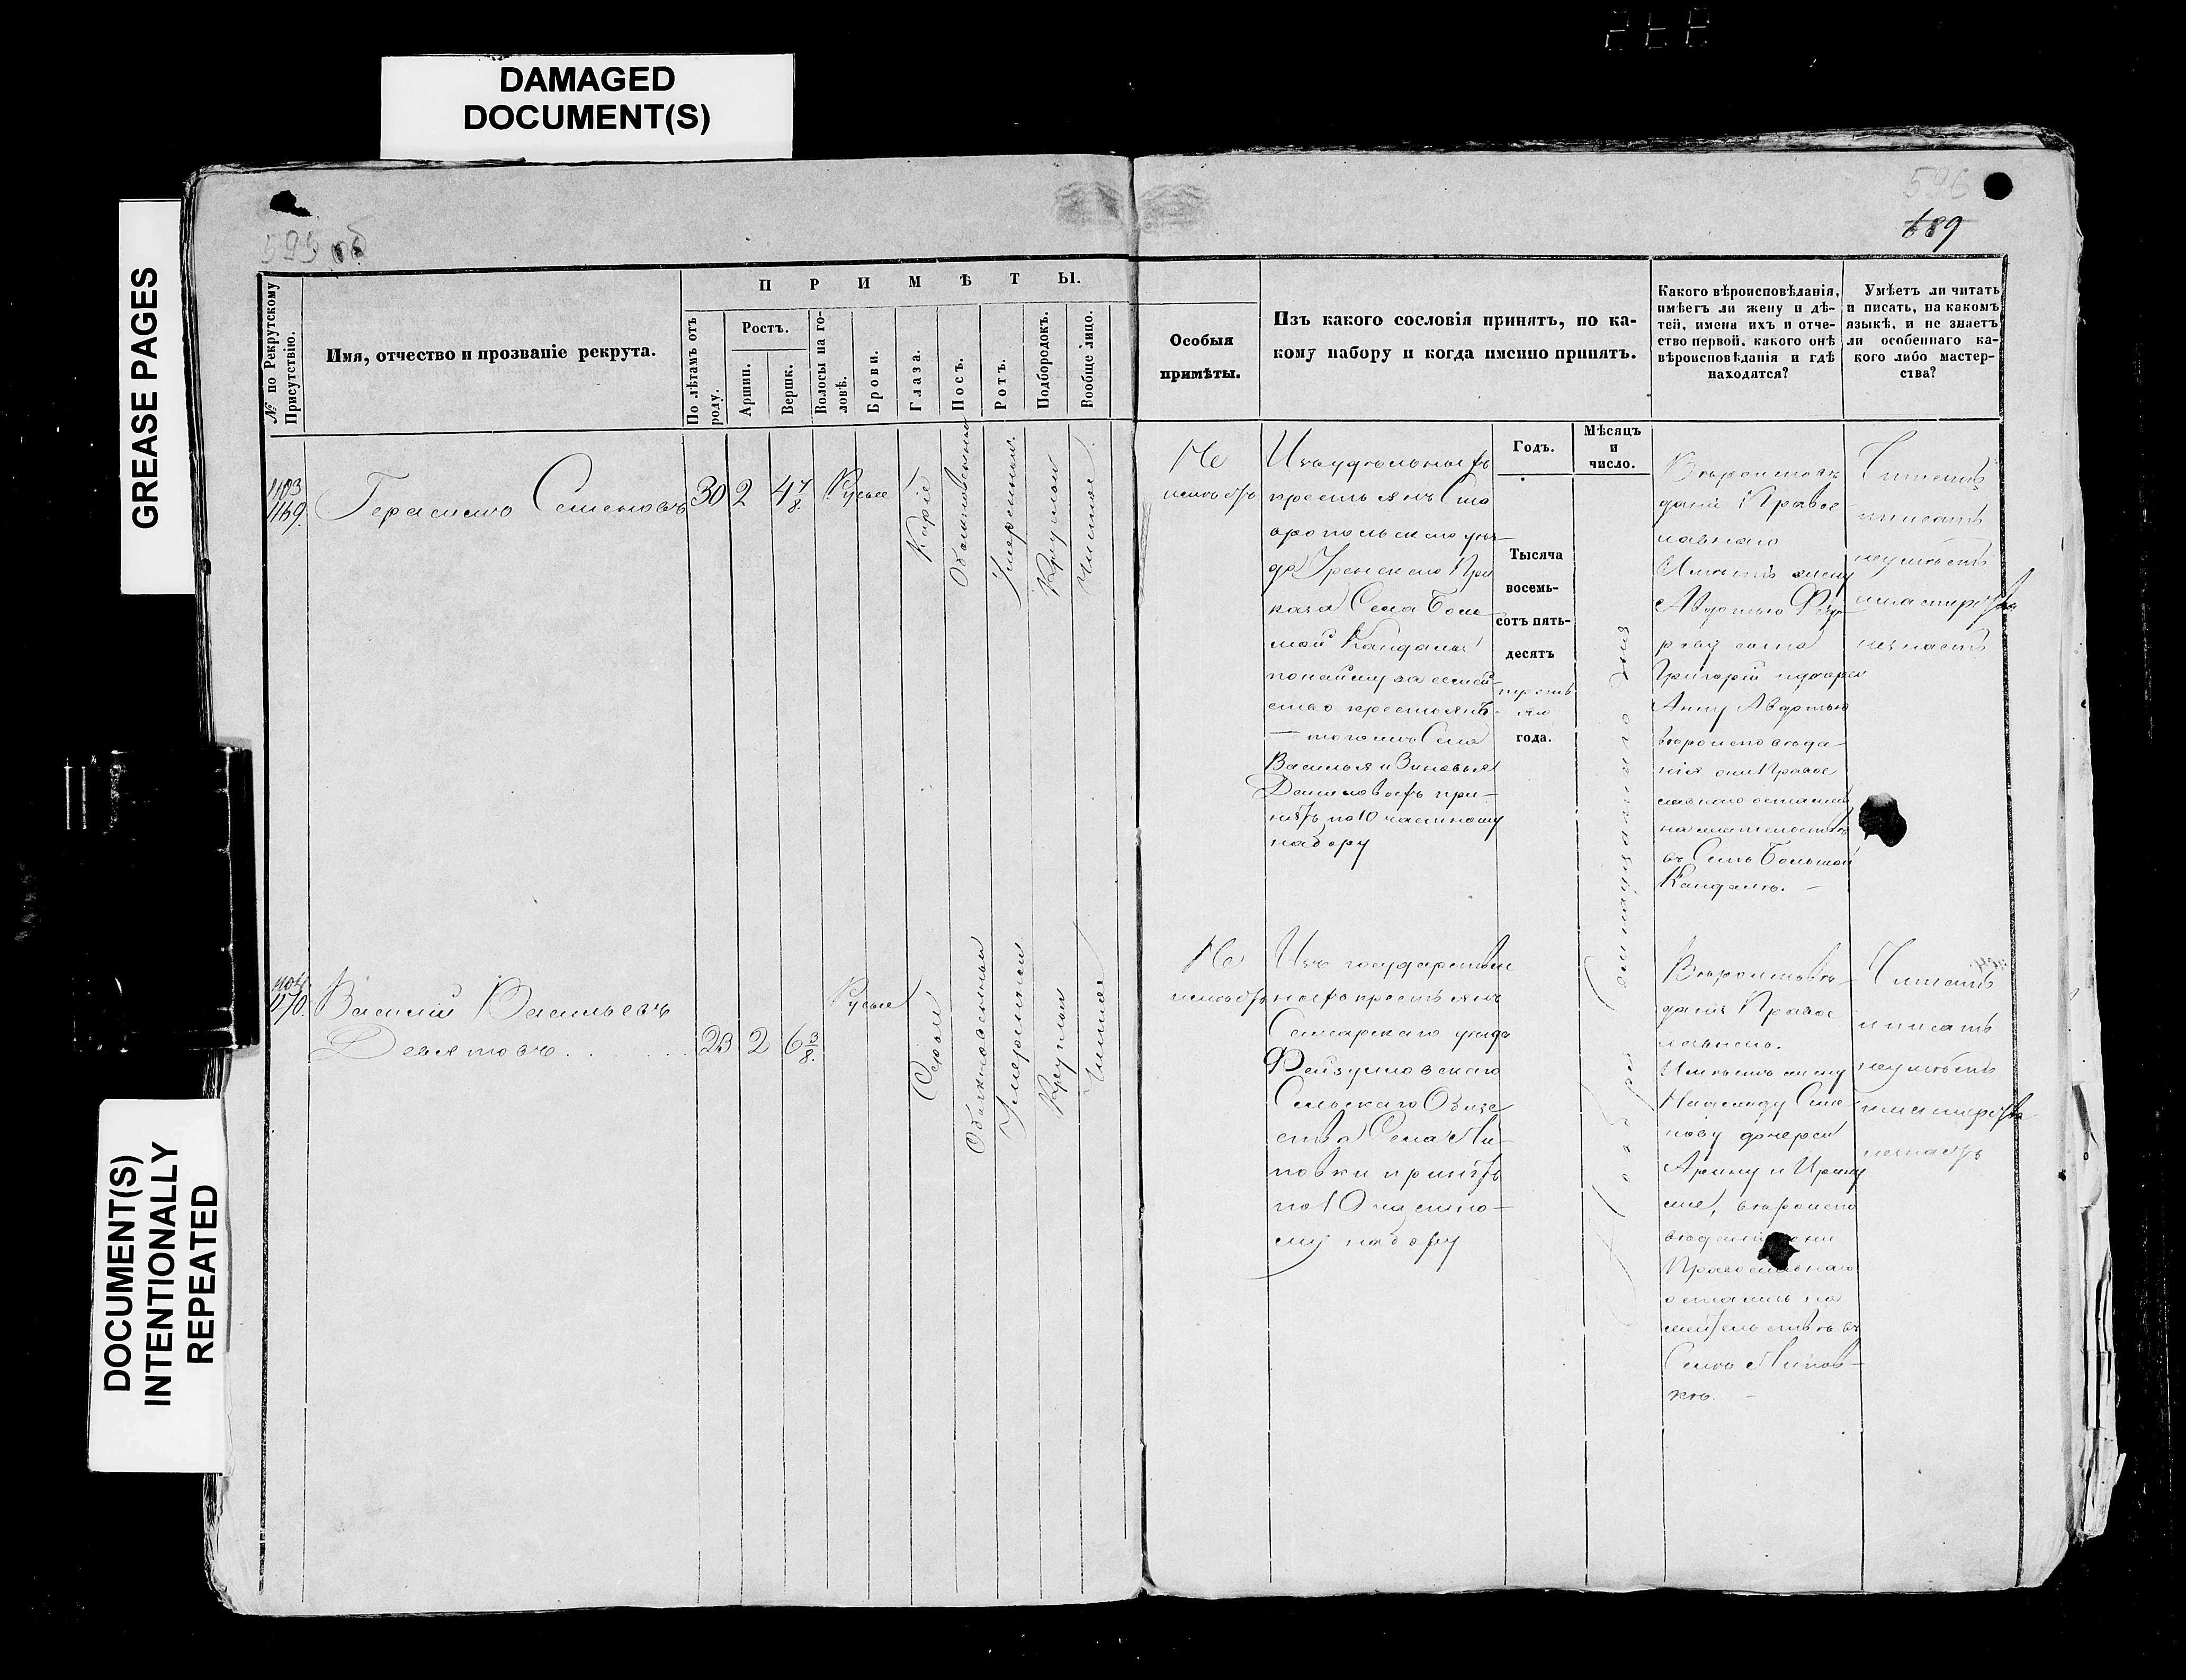 DAMAGED
DOCUMENT(S)
GREASE PAGES
DOCUMENT(S)
INTENTIONALLY
REPEATED
595 об
596
689
№ по Рекрутскому
Присутствію.
Имя, отчество и прозваніе рекрута.
П Р И М Ѣ Т Ы.
По лѣтамъ отъ
роду.
Ростъ.
Аршин.
Вершк.
Волосы на го-
ловѣ.
Брови.
Глаза.
Носъ.
Ротъ.
Подбородокъ.
Вообще лицо.
Особыя
примѣты.
Изъ какого сословія принятъ, по ка-
кому набору и когда именно принятъ.
Какого вѣроисповѣданія,
имѣетъ ли жену и дѣ-
тей, имена ихъ и отче-
ство первой, какого онѣ
вѣроисповѣданія и гдѣ
находятся?
Умѣетъ ли читать
и писать, на какомъ
языкѣ, и не знаетъ
ли особеннаго ка-
кого либо мастер-
ства?
Годъ.
Мѣсяцъ
и
число.
1103
1169.
Герасимъ Семеновъ
30 2 4 7/8
Русые
Каріе
Обыкновенный
Умѣренный
Круглый
Чистое
Не
имѣетъ
Изъ удѣльныхъ
крестьянъ Ста
вропольскаго уѣз
да Урѣнскаго При
каза Села Боль
шой Кандалы
по найму за семей
ство крестьянъ
тогожъ Села
Василья и Зиновья
Даниловыхъ при-
нятъ по 10 частному
набору
Тысяча
восемь-
сотъ пять-
десятъ
третья
го
года.
Вѣроисповѣ
данія Правос
лавнаго
Имѣетъ жену
Авдотью Федо
рову сына
Григорій и дочерей
Анну Авдотью
вѣроисповѣда
нія они Правос
лавнаго остались
на жительствѣ
въ Селѣ Большой
Кандалѣ.
Читать
и писать
неумѣетъ
и мастерства
незнаетъ
1104
1170.
Василій Васильевъ
Девятовъ
23 2 6 3/8.
Русые
Сѣрые
Обыкновенный
Умѣренный
Круглый
Чистое
Не
имѣетъ
Изъ государствен
ныхъ крестьянъ
Самарскаго уѣзда
Сельскаго Обще
ства Села Ли
повки принятъ
по 10 частно-
му набору
Вѣроисповѣ
данія Правос
лавнаго.
Имѣетъ жену
Надежду Семе
нову дочерей
Арину и Ирину
вѣроиспо
вѣданія они
Православнаго
остались на
жительствѣ въ
Селѣ Липов-
кѣ.
Читать
и писать
неумѣетъ
и мастерства
незнаетъ